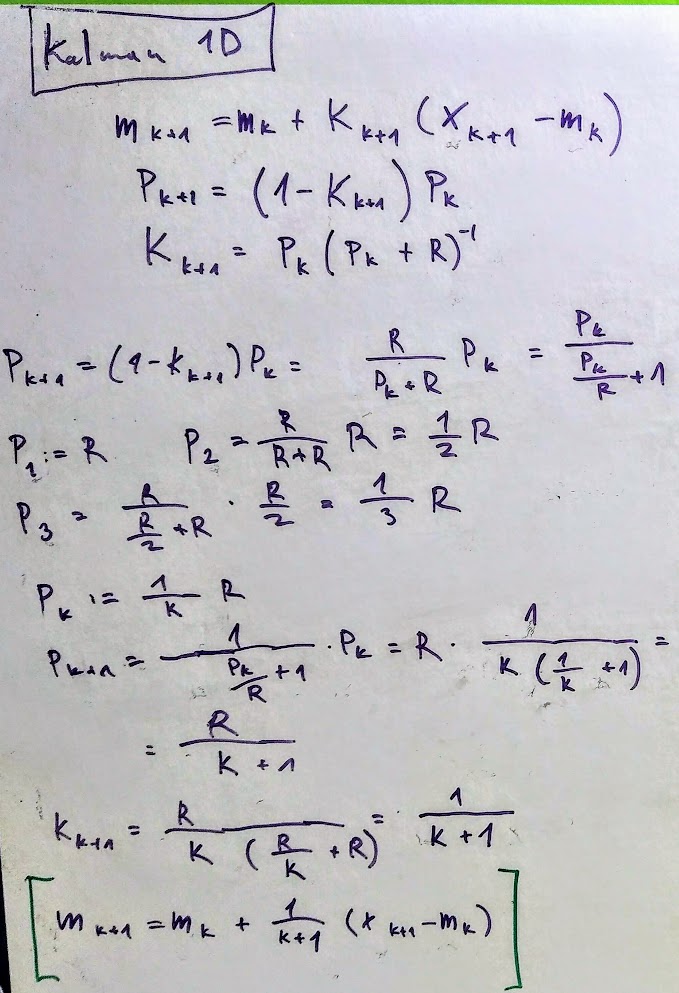 Kalman 1D
m_{k+1} = m_k + K_{k+1} (x_{k+1} - m_k)
P_{k+1} = (1 - K_{k+1}) P_k
K_{k+1} = P_k (P_k + R)^{-1}
P_{k+1} = (1 - K_{k+1}) P_k = \frac{R}{P_k + R} P_k = \frac{P_k}{\frac{P_k}{R} + 1}
P_1 := R    P_2 = \frac{R}{R + R} R = \frac{1}{2} R
P_3 = \frac{R}{\frac{R}{2} + R} · \frac{R}{2} = \frac{1}{3} R
P_k := \frac{1}{k} R
P_{k+1} = \frac{1}{\frac{P_k}{R} + 1} · P_k = R · \frac{1}{k (\frac{1}{k} + 1)} =
= \frac{R}{k + 1}
K_{k+1} = \frac{R}{k (\frac{R}{k} + R)} = \frac{1}{k + 1}
m_{k+1} = m_k + \frac{1}{k+1} (x_{k+1} - m_k)